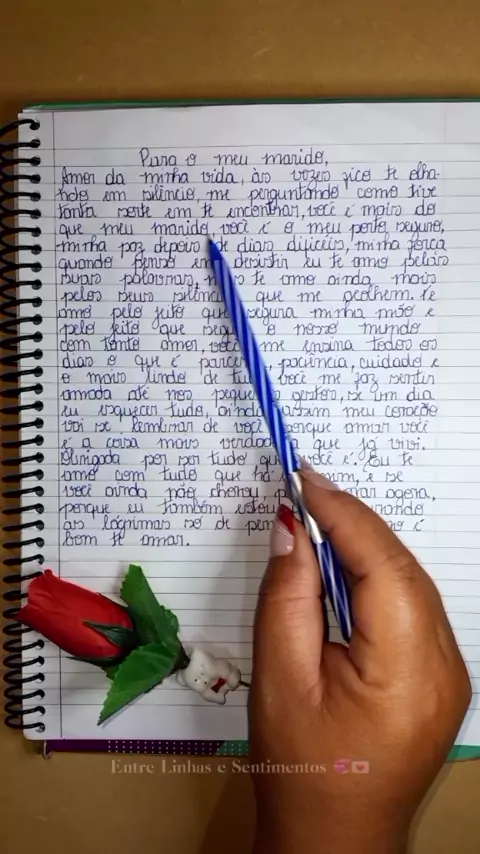 Para o meu marido,
Amor da minha vida, às vezes fico te olha-
ndo em silêncio, me perguntando como tive
tanta sorte em te encontrar, você é mais do
que meu marido, você é o meu porto seguro,
minha paz depois de dias difíceis, minha força
quando penso em desistir eu te amo pelas
suas palavras, mas te amo ainda mais
pelos seus silêncios que me acolhem. Te
amo pelo jeito que segura minha mão e
pelo jeito que segura o nosso mundo
com tanto amor, você me ensina todos os
dias o que é parceria, paciência, cuidado e
o mais lindo de tudo você me faz sentir
amada até nos pequenos gestos, se um dia
eu esquecer tudo, ainda assim meu coração
vai se lembrar de você porque amar você
é a coisa mais verdadeira que já vivi.
Obrigada por ser tudo que você é. Eu te
amo com tudo que há em mim, e se
você ainda não chorou, agora,
porque eu também estou
as lágrimas só de é
bom te amar.
Entre Linhas e Sentimentos